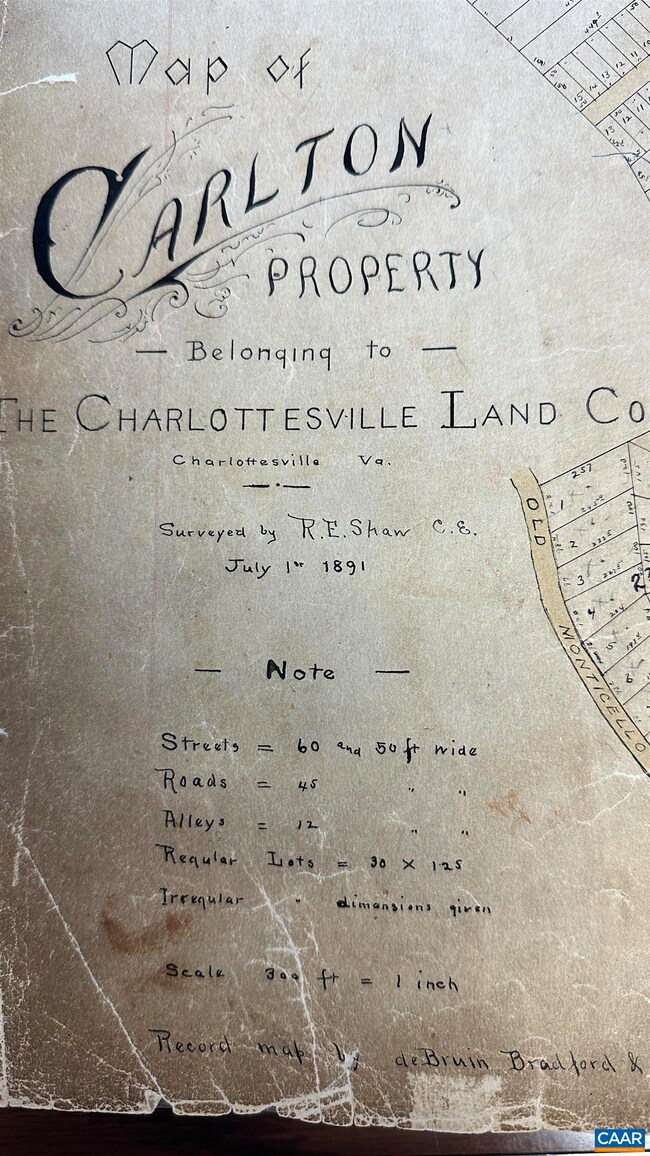 Map of
CARLTON
PROPERTY
— Belonging to —
THE CHARLOTTESVILLE LAND CO
Charlottesville Va.
Surveyed by R.E. Shaw C.E.
July 1st 1891
— Note —
Streets = 60 and 50 ft wide
Roads = 45 " "
Alleys = 12 " "
Regular Lots = 30 x 125
Irregular " dimensions given
Scale 300 ft = 1 inch
Record map by deBruin Bradford &
OLD
MONTICELLO
257
1
2
3
4
5
6
CAAR